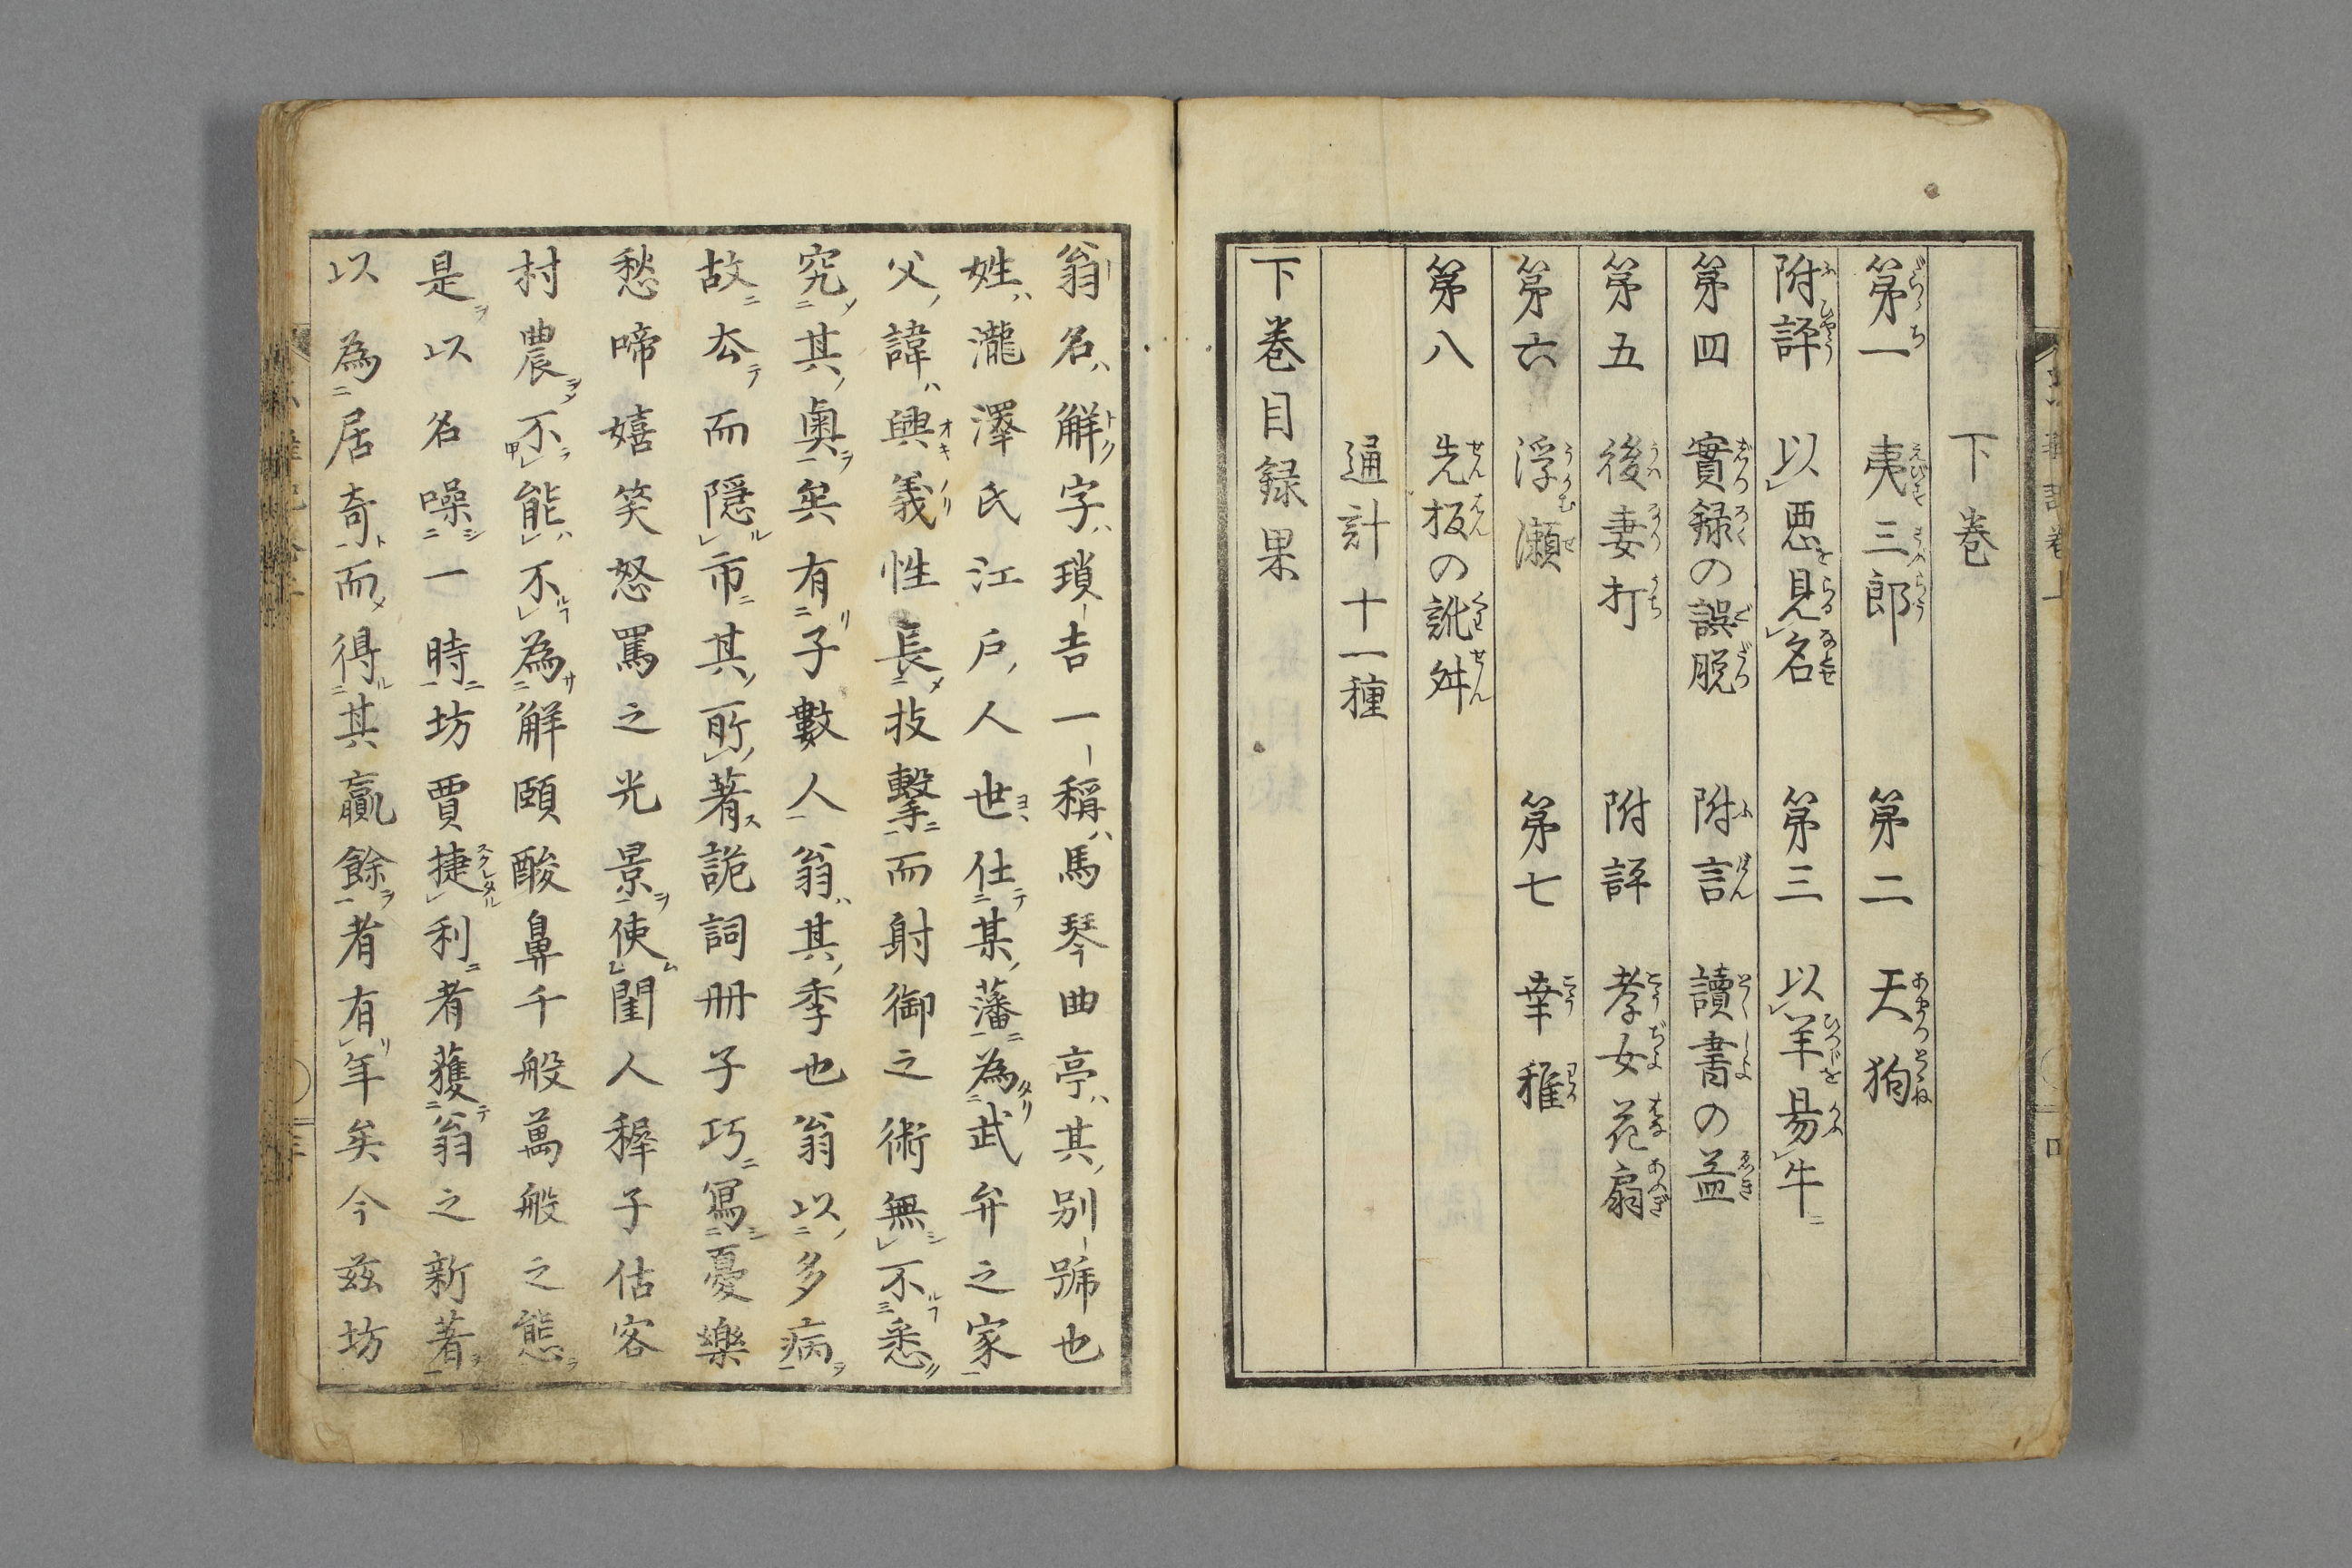 下巻
第一 夷三郎 第二 天狗
附評 以悪見名 第三 以羊易牛
第四 實録の誤脱 附言 讀書の益
第五 後妻打 附評 孝女花扇
第六 浮瀬 第七 幸稚
第八 先板の訛舛
通計十一種
下巻目録果
翁名解字瑣吉一稱馬琴曲亭其別號也
姓瀧澤氏江戸人世仕某藩為武弁之家
父諱興義性長技擊而射御之術無不悉
究其奧矣有子數人翁其季也翁以多病
故去而隱市其所著詭詞册子巧寫憂樂
愁啼嬉笑怒罵之光景使閨人穉子估客
村農不能不為解頤酸鼻千般萬般之態
是以名噪一時坊賈捷利者獲翁之新著
以為居奇而得其贏餘者有年矣今茲坊